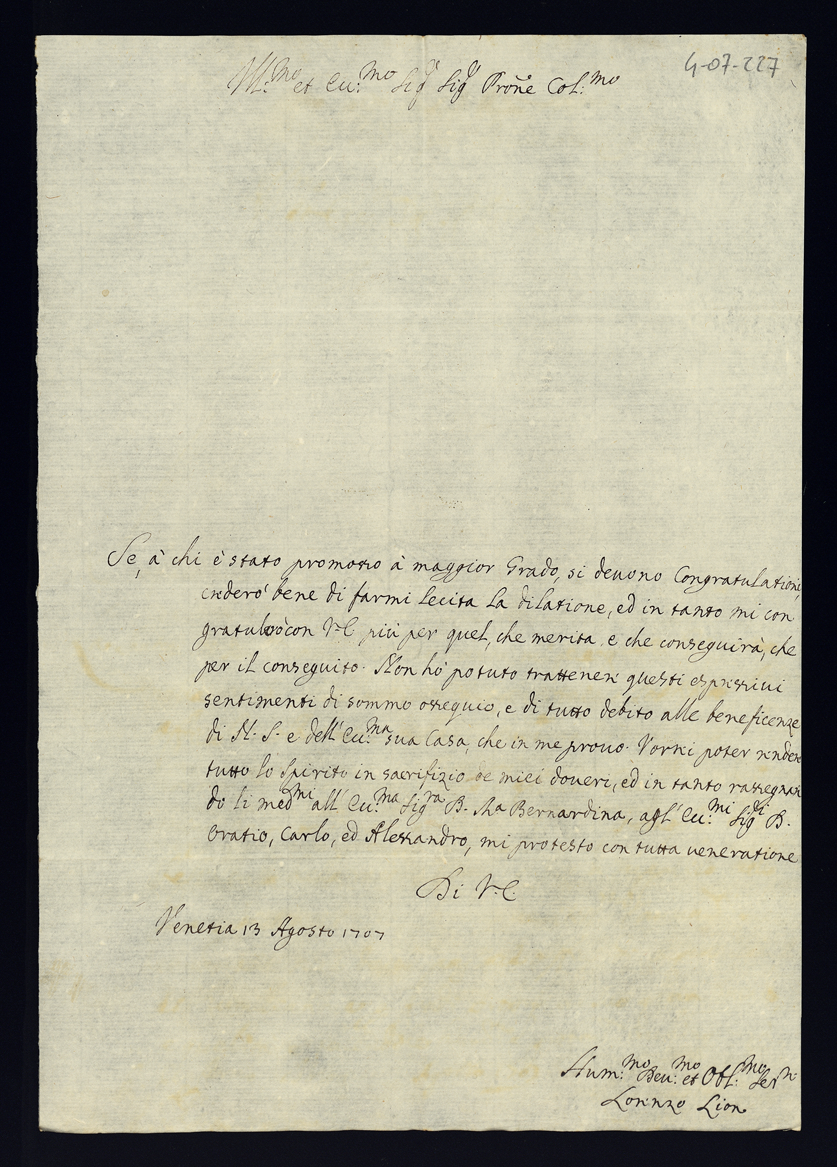 4-07-227
Ill:mo et Ecc:mo Sigr Sigr Prone Col:mo
Se, à chi è stato promosso à maggior Grado, si deuono Congratulationi,
crederò bene di farmi lecita la dilatione, ed in tanto mi con
gratulo con V.E. più per quel, che merita e che conseguirà, che
per il conseguito. Non hò potuto trattenere questi espressiui
sentimenti di sommo ossequio, e di tutto debito alle beneficenze
di N. S. e dell' Ecc:ma sua Casa, che in me prouo. Vorrei poter rendere
tutto lo Spirito in sacrifizio de miei doueri, ed in tanto rassegnan
do li medmi all' Ecc:ma Sigra D. Ma Bernardina, agl' Ecc:mi Sigri D.
Oratio, Carlo, ed Alessandro, mi protesto con tutta ueneratione
Di V.E.
Venetia 13 Agosto 1707
Hum:mo Deu:mo et Obl:mo Serr:
Lorenzo Lion